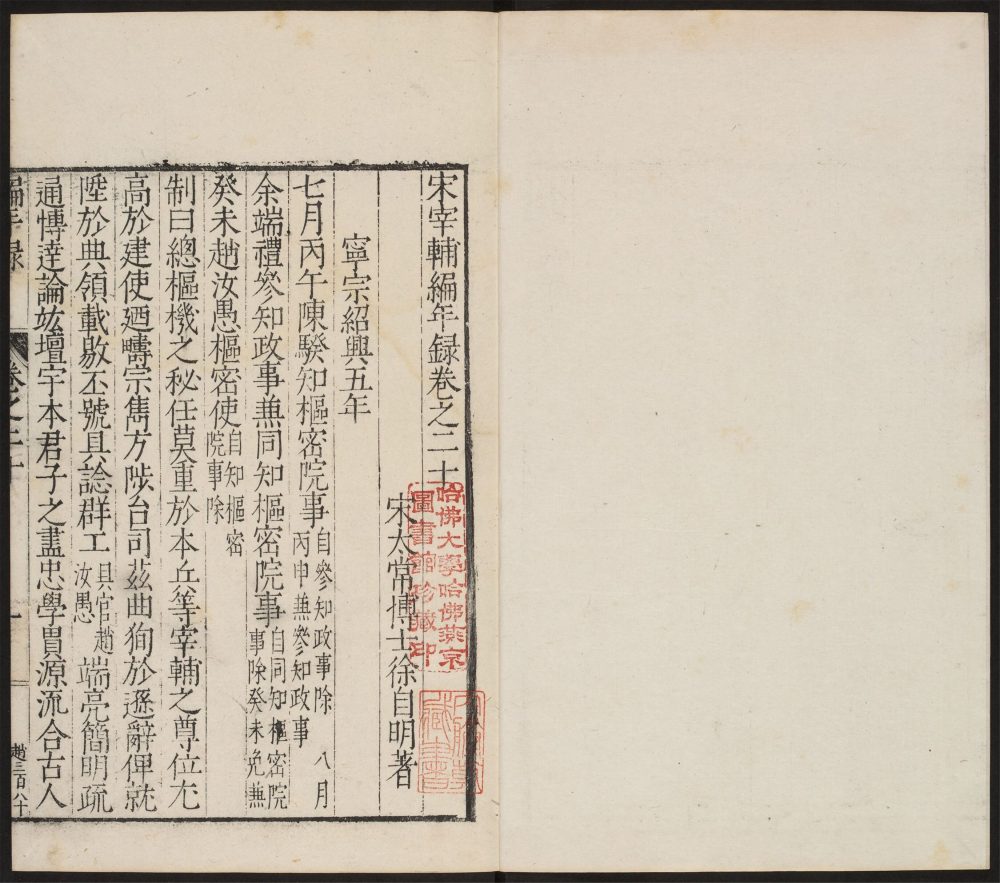 宋宰輔編年録卷之二十
宋太常博士徐自明著
寧宗紹興五年
七月丙午陳騤知樞密院事自參知政事除 八月丙申兼參知政事
余端禮參知政事兼同知樞密院事自同知樞密院事除癸未免兼
癸未趙汝愚樞密使自知樞密院事除
制曰總樞機之秘任莫重於本兵等宰輔之尊位尢
高於建使廼疇宗雋方陟台司茲曲狥於遜辭俾就
陞於典領載敭丕號具諗群工具官趙汝愚端亮簡明疏
通愽達論竑壇宇本君子之盡忠學貫源流合古人
編年録 卷之二十 一 趙三百八十
哈佛大學哈佛燕京
圖書館珍藏印